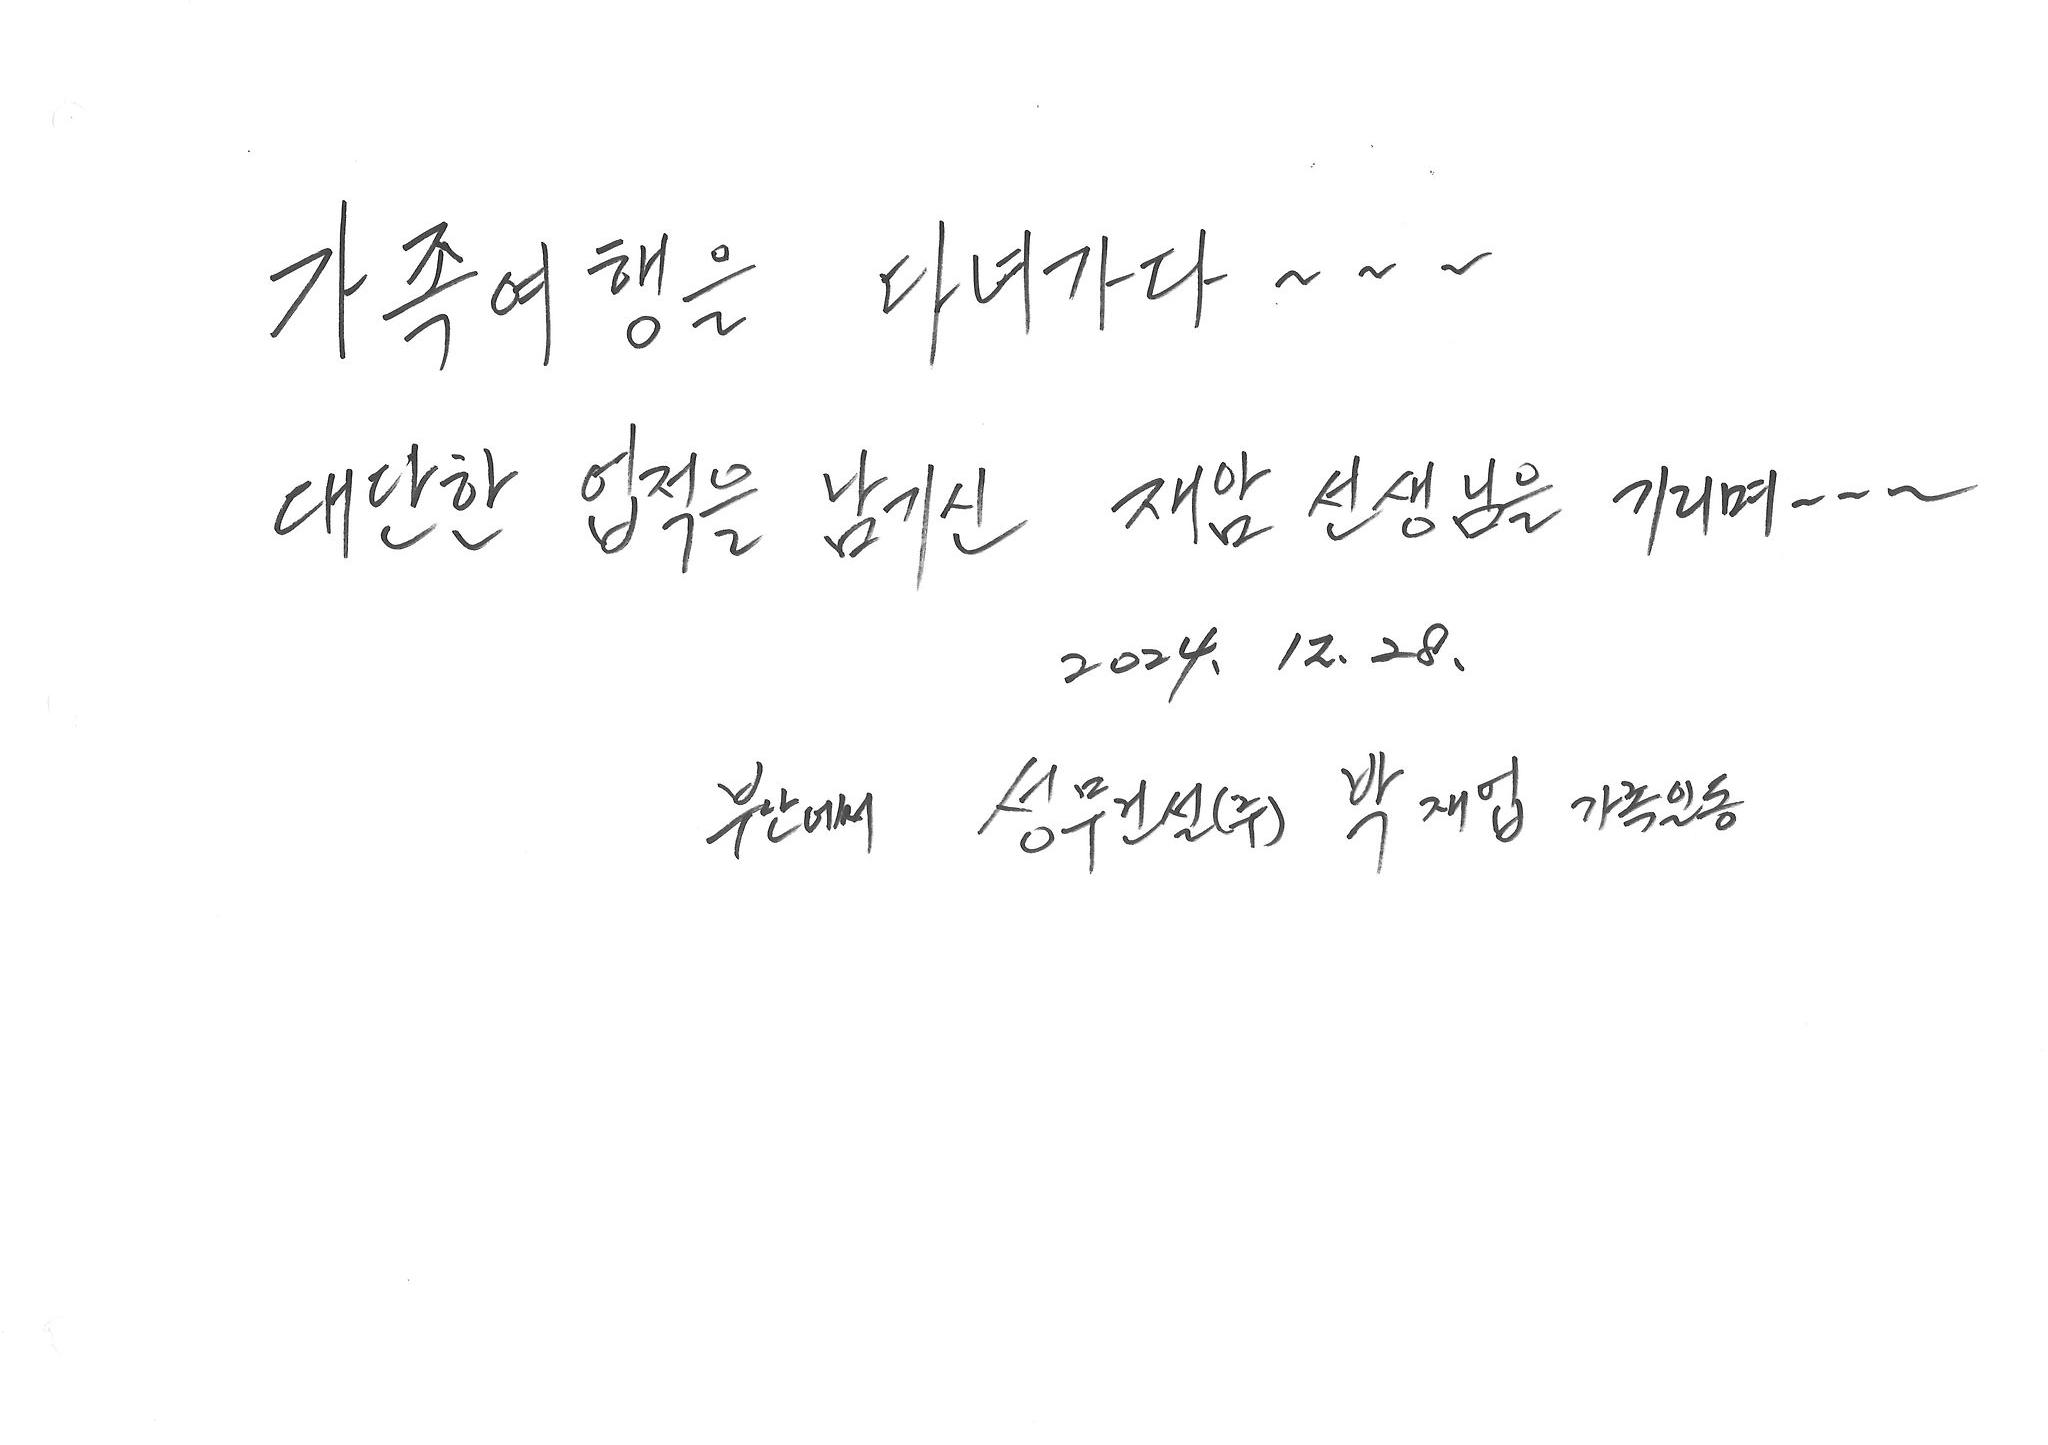 가족여행을 다녀가다~~~
대단한 업적을 남기신 재암 선생님을 기리며~~~
2024. 12. 28.
부산에서 성무건설(주) 박재업 가족일동